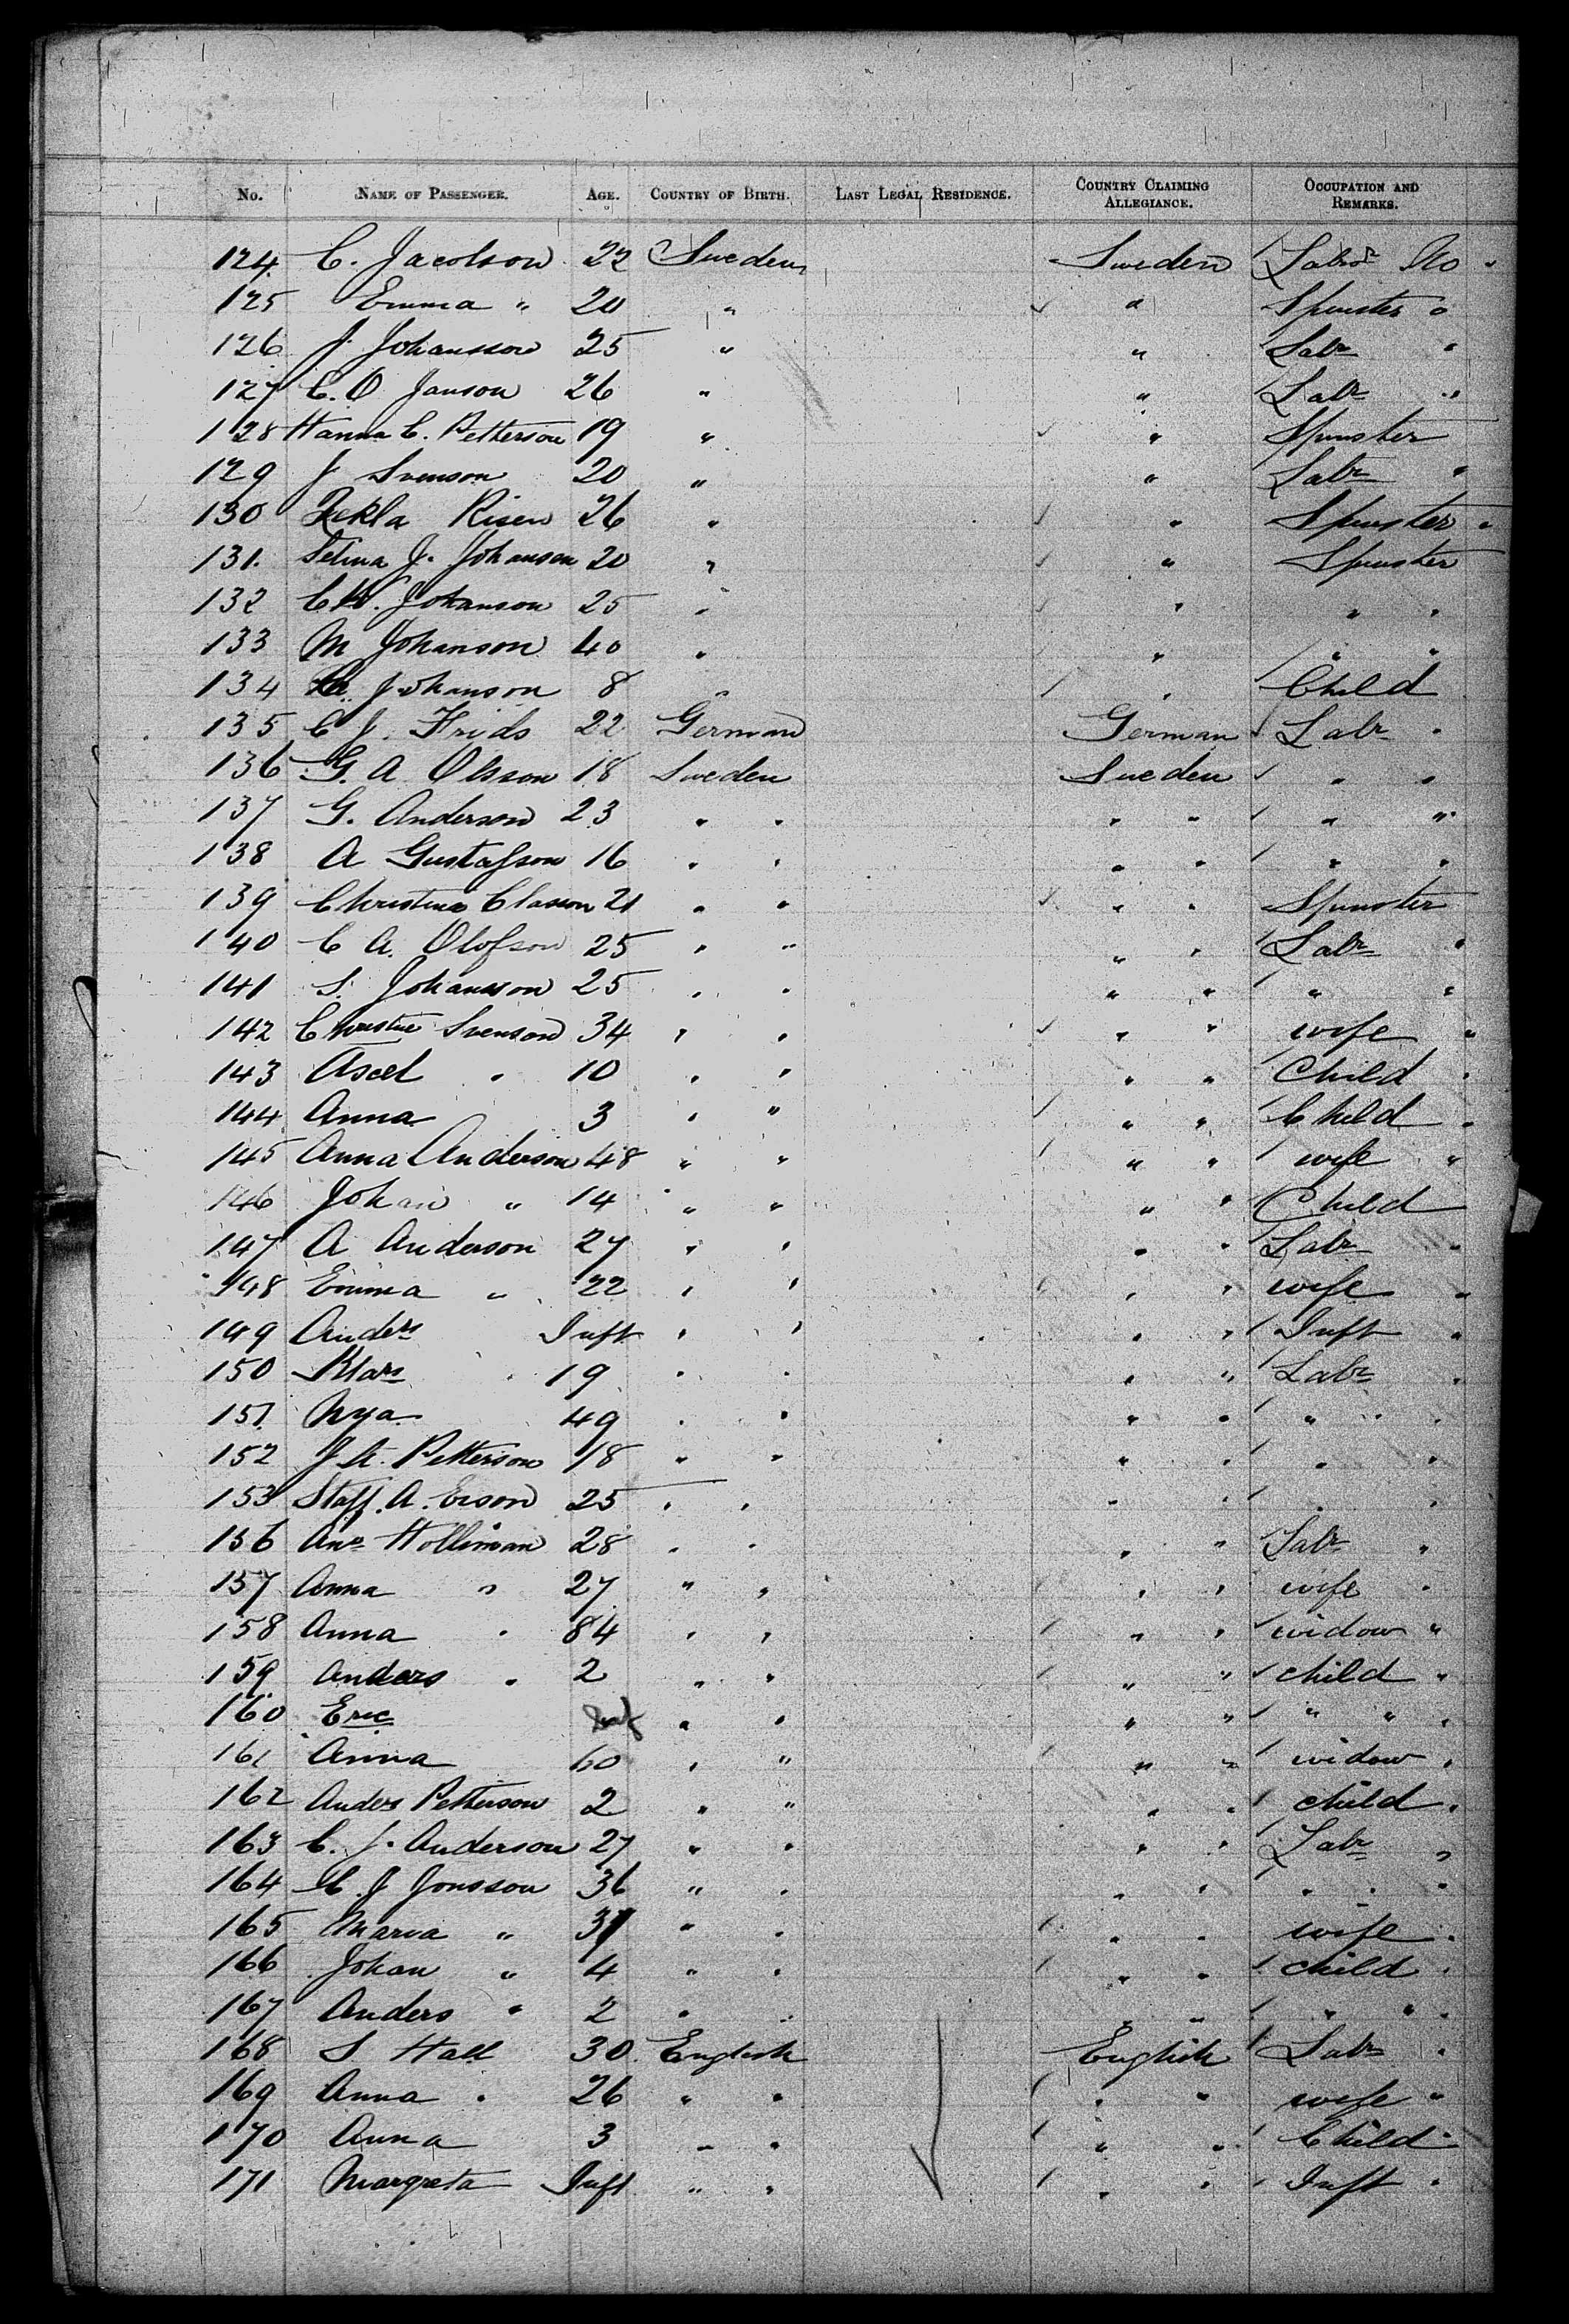 No. NAME OF PASSENGER. AGE. COUNTRY OF BIRTH. LAST LEGAL RESIDENCE. COUNTRY CLAIMING ALLEGIANCE. OCCUPATION AND REMARKS.
124 C. Jacobson 22 Sweden Sweden Labor
125 Emma " 20 " " Spinster "
126 J. Johansson 25 " " Labr "
127 C. O Janson 26 " " Labr "
128 Hanna C. Petterson 19 " " Spinster
129 J Svenson 20 " " Labr "
130 Tekla Risen 26 " " Spinster "
131. Selma J. Johanson 20 " " Spinster
132 Johanson 25 " " " "
133 M Johanson 40 " " " "
134 Johanson 8 " " Child
135 C J. Frids 22 German German Labr "
136 G. A Olsson 18 Sweden Sweden " "
137 G. Anderson 23 " " " " " "
138 A Gustafson 16 " " " " " "
139 Christina Classon 21 " " " " Spinster
140 C A. Olofson 25 " " " " Labr "
141 S. Johansson 25 " " " " " "
142 Christine Svenson 34 " " " " wife "
143 Axel " 10 " " " " Child "
144 Anna 3 " " " " Child "
145 Anna Anderson 48 " " " " wife "
146 Johan " 14 " " " " Child
147 A Anderson 27 " " " " Labr "
148 Emma " 22 " " " " wife "
149 Anders Inft " " " " Inft "
150 19 " " " " Labr "
151 49 " " " " " "
152 Petterson 18 " " " " " "
153 Staff. A. 25 " " " " "
156 Holliman 28 " " " " Labr "
157 Anna " 27 " " " " wife "
158 Anna " 84 " " " " widow "
159 Anders " 2 " " " " child "
160 Eric Inf " " " " " " "
161 Anna 60 " " " " widow "
162 Anders Petterson 2 " " " " child "
163 C. J. Anderson 27 " " " " Labr "
164 C. J Jonsson 36 " " " " " " "
165 Maria " " " " " wife "
166 Johan " 4 " " " " child "
167 Anders " 2 " " " " " " "
168 S Hall 30 English English Labr "
169 Anna " 26 " " " " wife "
170 Anna 3 " " " " Child "
171 Margreta Inft " " " " Inft "